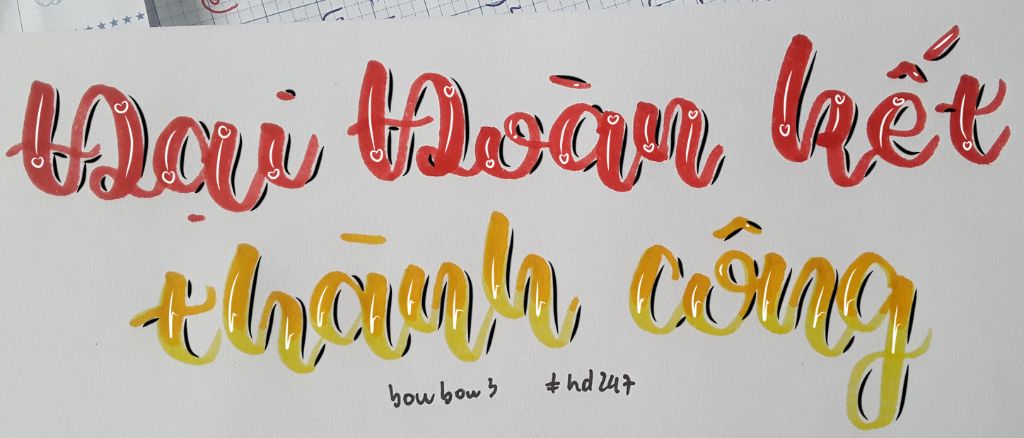 Đại Đoàn kết
thành công
bowbow3 #hd247